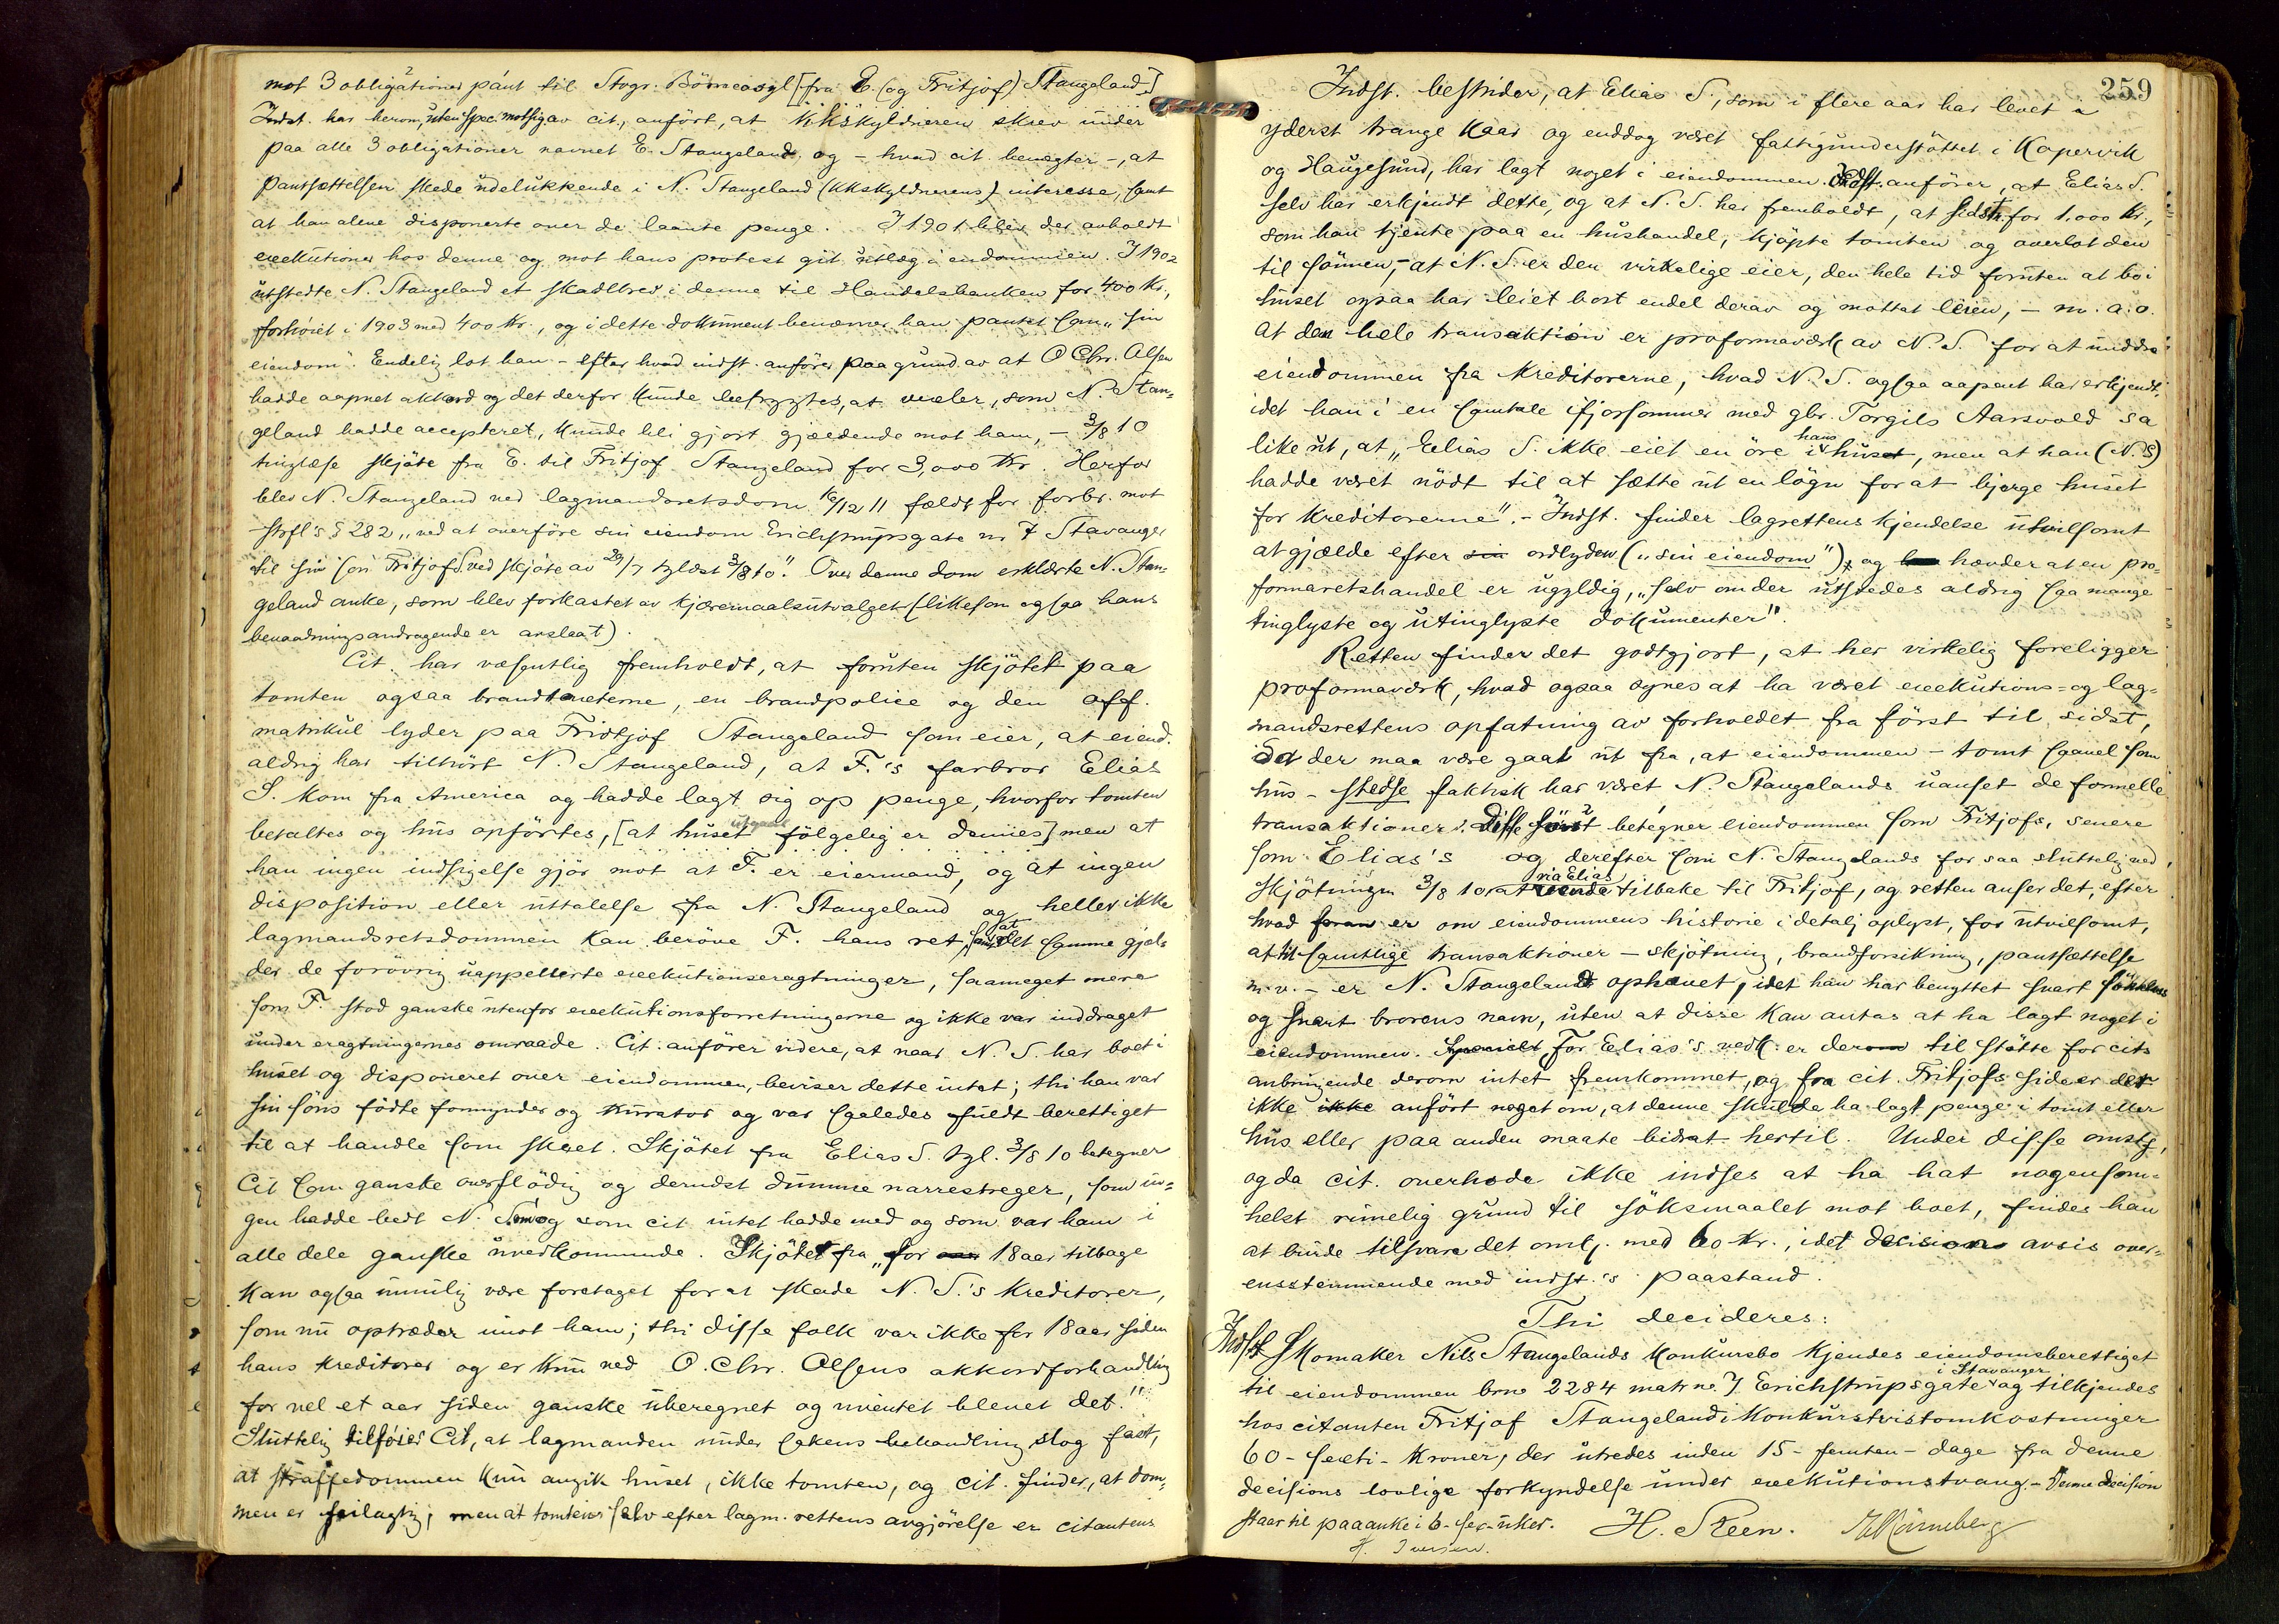 mot 3 obligationer pant til Stvgr. Börneasyl [fra E. (og Fritjof) Stangeland]
Indst. har herom, uten spec. motsig. av cit., anfört, at kkskyldneren skrev under
paa alle 3 obligationer navnet E. Stangeland, og - hvad cit. benegter -, at
pantsættelsen skede udelukkende i N. Stangeland (kkskyldnerens) interesse, samt
at han alene disponerte over de laante penge. I 1901 blev der avholdt
executioner hos denne og mot hans protest git utlæg i eiendommen. I 1902
utstedte N. Stangeland et skadlbrev i denne til Handelsbanken for 400 Kr.,
forhöiet i 1903 med 400 Kr., og i dette dokument benævner han pantet som "sin
eiendom". Endelig lot han - efter hvad indst. anfører paa grund av at O Chr. Olsen
hadde aapnet akkord og det derfor kunde befrygtes, at vexler, som N. Stan=
geland hadde accepteret, kunde bli gjort gjældende mot ham, - 3/8 10
tinglæse skjöte fra E. til Fritjof Stangeland for 3,000 Kr. Herfor
blev N. Stangeland ved lagmandsretsdom 16/12 11 fældt for forbr. mot
strfl's § 282 "ved at overföre sin eiendom Erichstrupsgate nr 7 Stavanger
til sin sön Fritjof S. ved skjöte av 29/7 tglæst 3/8 10". Over denne dom erklærte N. Stan=
geland anke, som blev forkastet av kjæremaalsutvalget (likesom ogsaa hans
benaadningsandragende er avslaat).
Cit. har væsentlig fremholdt, at foruten skjötet paa
tomten ogsaa brandtaxterne, en brandpolice og den off.
matrikul lyder paa Fridtjof Stangeland som eier, at eiend.
aldrig har tilhört N. Stangeland, at F.'s farbror Elias
S. kom fra America og hadde lagt sig op penge, hvorfor tomten
betaltes og hus opförtes, [at huset fölgelig er dennes] men at
utgaar
han ingen indsigelse gjör mot at F. er eiermand, og at ingen
disposition eller uttalelse fra N. Stangeland og heller ikke
lagmandsretsdommen kan beröve F. hans ret, samt at det samme gjæl=
der de forövrig uappellerte executionseragtninger, saameget mere
som F. stod ganske utenfor executionsforretningerne og ikke var inddraget
under eragtningernes omraade. Cit. anförer videre, at naar N. S. har boet i
huset og disponeret over eiendommen, beviser dette intet; thi han var
sin söns födte formynder og kurator og var saaledes fuldt berettiget
til at handle som skeet. Skjötet fra Elias S. tgl. 3/8 10 betegner
Cit som ganske overflödig og derudst dumme narrestreger, som in=
gen hadde bedt N. S. om og som cit intet hadde med og som var ham i
alle dele ganske uvedkommende. Skjötet fra "for 18 aar tilbage
kan ogsaa umulig være foretaget for at skade N. S.'s kreditorer,
som nu optræder imot ham; thi disse folk var ikke for 18 aar siden
hans kreditorer og er kun ved O. Chr. Olsens akkordforhandling
for vel et aar siden ganske uberegnet og uventet blevet det."
Sluttelig tilföier Cit, at lagmanden under sakens behandling slog fast,
at straffedommen kun angik huset, ikke tomten, og cit. finder, at dom=
men er feilagtig, men at tomten selv efter lagm. rettens avgjörelse er citantens
259
Indst. bestrider, at Elias S., som i flere aar har levet i
yderst trange kaar og enddog været fattigunderstöttet i Kopervik
og Haugesund, har lagt noget i eiendommen. Indst. anförer, at Elias S.
selv har erkjendt dette, og at N. S. har fremholdt, at sidstn. for 1.000 Kr.,
som han tjente paa en hushandel, kjöpte tomten og overlot den
til sönnen, - at N. S. er den virkelige eier, den hele tid foruten at bo i
huset ogsaa har leiet bort endel derav og mottat leien, - m. a. o.
at den hele transaktion er proformaværk av N. S. for at unddra
eiendommen fra kreditorerne, hvad N. S. ogsaa aapent har erkjendt,
idet han i en samtale ifjorsommer med gbr. Torgils Aarsvold sa
like ut, at "Elias S. ikke eiet en öre i hans huset, men at han (N. S)
hadde været nödt til at sætte ut en lögn for at bjerge huset
for kreditorerne". - Indst. finder lagrettens kjendelse utvilsomt
at gjælde efter sin ordlyden ("sin eiendom"), og hævder at en pro=
formaretshandel er ugyldig, "selv om der utstedes aldrig saa mange
tinglyste og utinglyste dokumenter".
Retten finder det godtgjort, at her virkelig foreligger
proformaværk, hvad ogsaa synes at ha været executions= og lag=
mandsrettens opfatning av forholdet fra först til sidst,
idet der maa være gaat ut fra, at eiendommen - tomt saavel som
hus - stedse faktisk har været N. Stangelands uanset de formelle
transaktioner. Disse först betegner eiendommen som Fritjofs, senere
som Elias's og derefter som N. Stangelands for saa sluttelig ved
skjötningen 3/8 10 at vende via Elias tilbake til Fritjof, og retten anser det, efter
hvad foran er om eiendommens historie i detalj oplyst, for utvilsomt,
at til samtlige transaktioner - skjötning, brandforsikring, pantsættelse
m. v. - er N. Stangeland ophavet, idet han har benyttet snart sönnens
og snart brorens navn, uten at disse kan antas at ha lagt noget i
eiendommen. Specielt For Elias's vedk. er derom til stötte for cits
anbringende derom intet fremkommet, og fra cit. Fritjofs side er det
ikke ikke anfört noget om, at denne skulde ha lagt penge i tomt eller
hus eller paa anden maate bidrat hertil. Under disse omstg,
og da cit. overhode ikke indses at ha hat nogensom=
helst rimelig grund til söksmaalet mot boet, findes han
at burde tilsvare det omk. med 60 Kr., idet decision avsis over=
ensstemmende med indst.'s paastand.
Thi decideres:
Indst Skomaker Nils Stangelands konkursbo kjendes eiendomsberettiget
til eiendommen brno 2284 matr no. 7 Erichstrupsgate i Stavanger og tilkjendes
hos citanten Fritjof Stangeland i konkurstvistomkostninger
60 - sexti - kroner, der utredes inden 15 - femten - dage fra denne
decisions lovlige forkyndelse under executionstvang. - Denne decision
staar til paaanke i 6 - sex - uker. H. Steen.
H. Iversen.